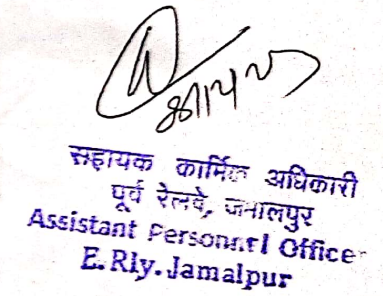 सहायक कार्मिक अधिकारी
पूर्व रेलवे, जमालपुर
Assistant Personnel Officer
E. Rly. Jamalpur